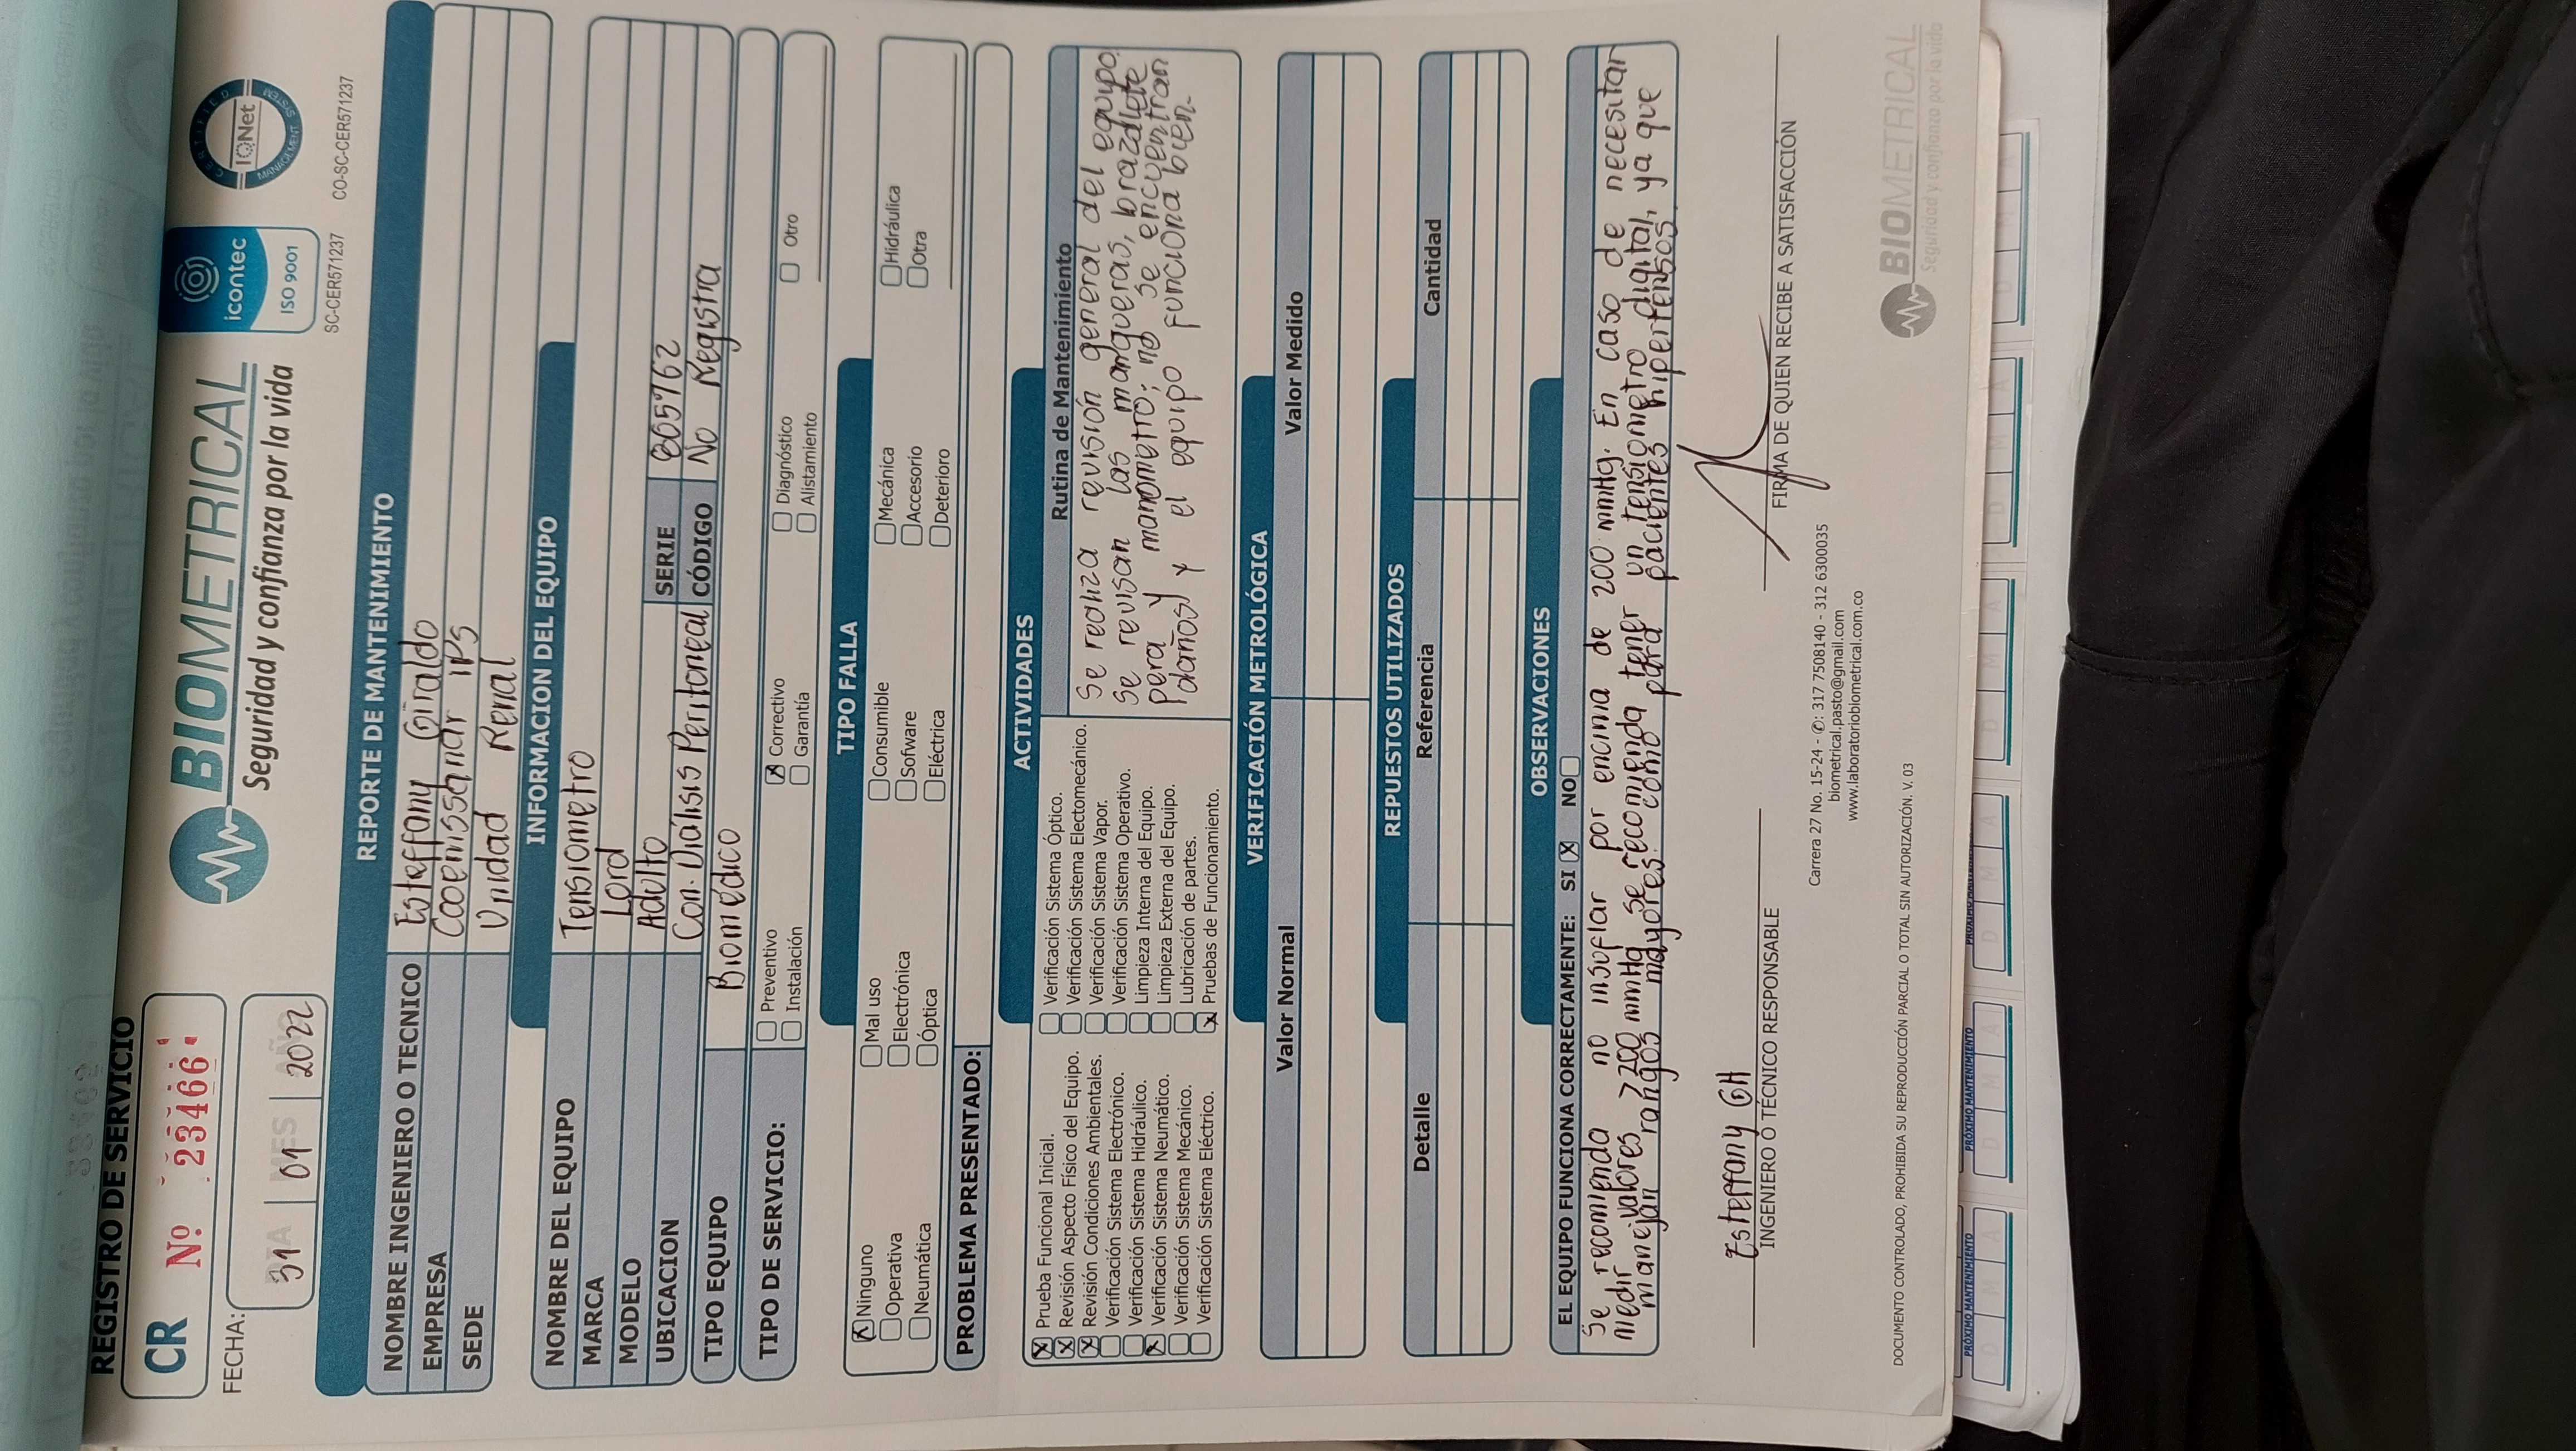 REGISTRO DE SERVICIO
CR Nº 23466
FECHA:
31 01 2022
BIOMETRICAL
Seguridad y confianza por la vida
icontec
ISO 9001
SC-CER571237
CERTIFIED
IQNet
MANAGEMENT SYSTEM
CO-SC-CER571237
REPORTE DE MANTENIMIENTO
NOMBRE INGENIERO O TECNICO Esteffany Giraldo
EMPRESA Cooemssanar IPS
SEDE Unidad Renal
INFORMACION DEL EQUIPO
NOMBRE DEL EQUIPO Tensiometro
MARCA Lord
MODELO Adulto SERIE 865762
UBICACION Con. Diálisis Peritoneal CÓDIGO No Registra
TIPO EQUIPO Biomédico
TIPO DE SERVICIO: Preventivo Correctivo Diagnóstico Otro
Instalación Garantía Alistamiento
TIPO FALLA
Ninguno Mal uso Consumible Mecánica Hidráulica
Operativa Electrónica Sofware Accesorio Otra
Neumática Óptica Eléctrica Deterioro
PROBLEMA PRESENTADO:
ACTIVIDADES
Prueba Funcional Inicial.
Revisión Aspecto Físico del Equipo.
Revisión Condiciones Ambientales.
Verificación Sistema Electrónico.
Verificación Sistema Hidráulico.
Verificación Sistema Neumático.
Verificación Sistema Mecánico.
Verificación Sistema Eléctrico.
Verificación Sistema Óptico.
Verificación Sistema Electomecánico.
Verificación Sistema Vapor.
Verificación Sistema Operativo.
Limpieza Interna del Equipo.
Limpieza Externa del Equipo.
Lubricación de partes.
Pruebas de Funcionamiento.
Rutina de Mantenimiento
Se realiza revisión general del equipo
se revisan las mangueras, brazalete
pera y manometro; no se encuentran
daños y el equipo funciona bien.
VERIFICACIÓN METROLÓGICA
Valor Normal Valor Medido
REPUESTOS UTILIZADOS
Detalle Referencia Cantidad
OBSERVACIONES
EL EQUIPO FUNCIONA CORRECTAMENTE: SI X NO
Se recomienda no insuflar por encima de 200 mmHg. En caso de necesitar
medir valores >200 mmHg se recomienda tener un tensiometro digital, ya que
manejan rangos mayores como para pacientes hipertensos.
Esteffany GH
INGENIERO O TÉCNICO RESPONSABLE
FIRMA DE QUIEN RECIBE A SATISFACCIÓN
Carrera 27 No. 15-24 - ✆: 317 7508140 - 312 6300035
biometrical.pasto@gmail.com
www.laboratoriobiometrical.com.co
DOCUMENTO CONTROLADO, PROHIBIDA SU REPRODUCCIÓN PARCIAL O TOTAL SIN AUTORIZACIÓN. V. 03
BIOMETRICAL
Seguridad y confianza por la vida
PRÓXIMO MANTENIMIENTO PRÓXIMO MANTENIMIENTO
D M A D M A D M A